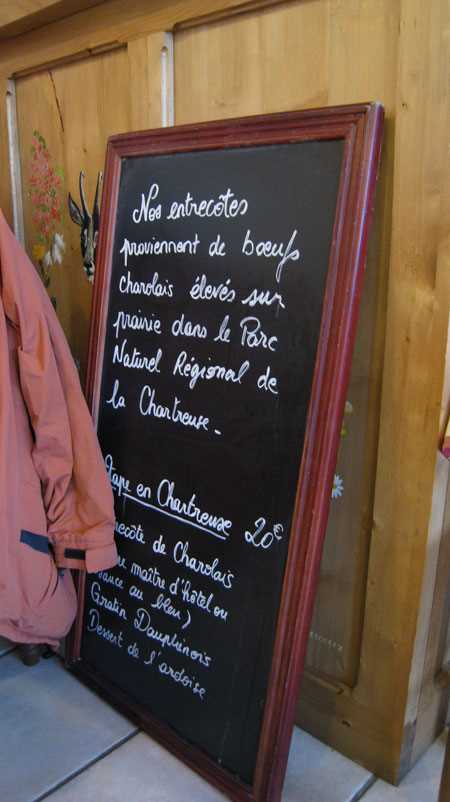 Nos entrecôtes
proviennent de bœufs
charolais élevés sur
prairie dans le Parc
Naturel Régional de
la Chartreuse.
tape en Chartreuse 20€
recôte de Charolais
maître d'hôtel ou
sauce au bleu)
Gratin Dauphinois
Dessert de l'ardoise